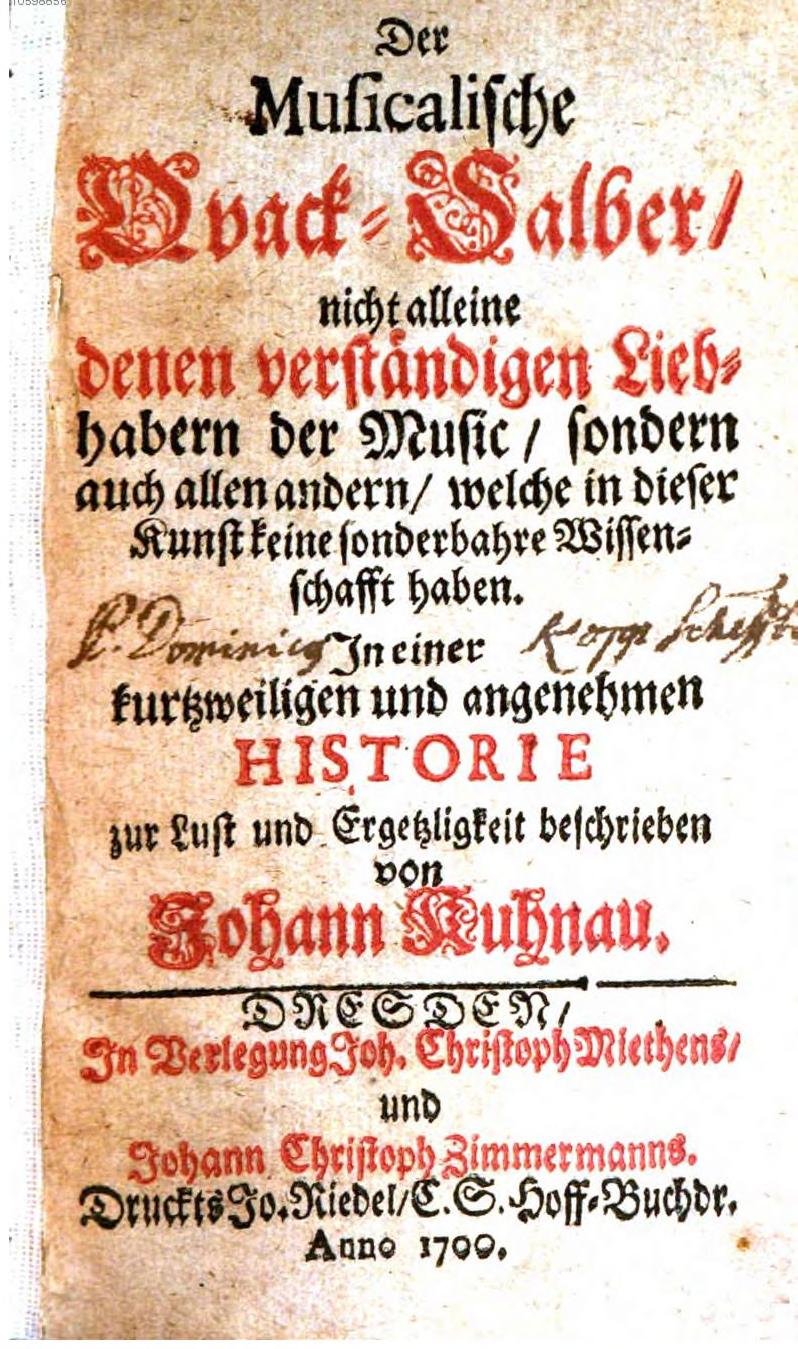 Der
Muſicaliſche
Qvack-Salber/
nicht alleine
denen verſtändigen Lieb-
habern der Muſic/ ſondern
auch allen andern/ welche in dieſer
Kunſt keine ſonderbahre Wiſſen-
ſchafft haben.
P. Dominicus In einer Kopp
kurtzweiligen und angenehmen
HISTORIE
zur Luſt und Ergetzligkeit beſchrieben
von
Johann Kuhnau.
DRESDEN/
In Verlegung Joh. Chriſtoph Miethens/
und
Johann Chriſtoph Zimmermanns.
Druckts Jo. Riedel/ C. S. Hoff-Buchdr.
Anno 1700.